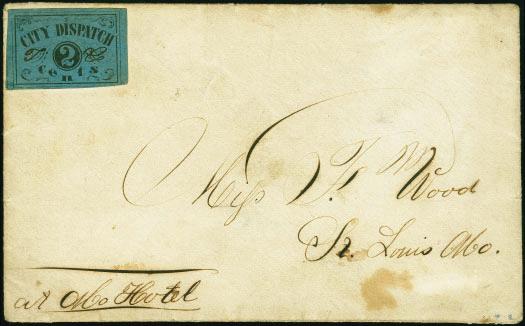 CITY DISPATCH
2
Cents
Miss F. M Wood
St. Louis Mo.
at Mo Hotel